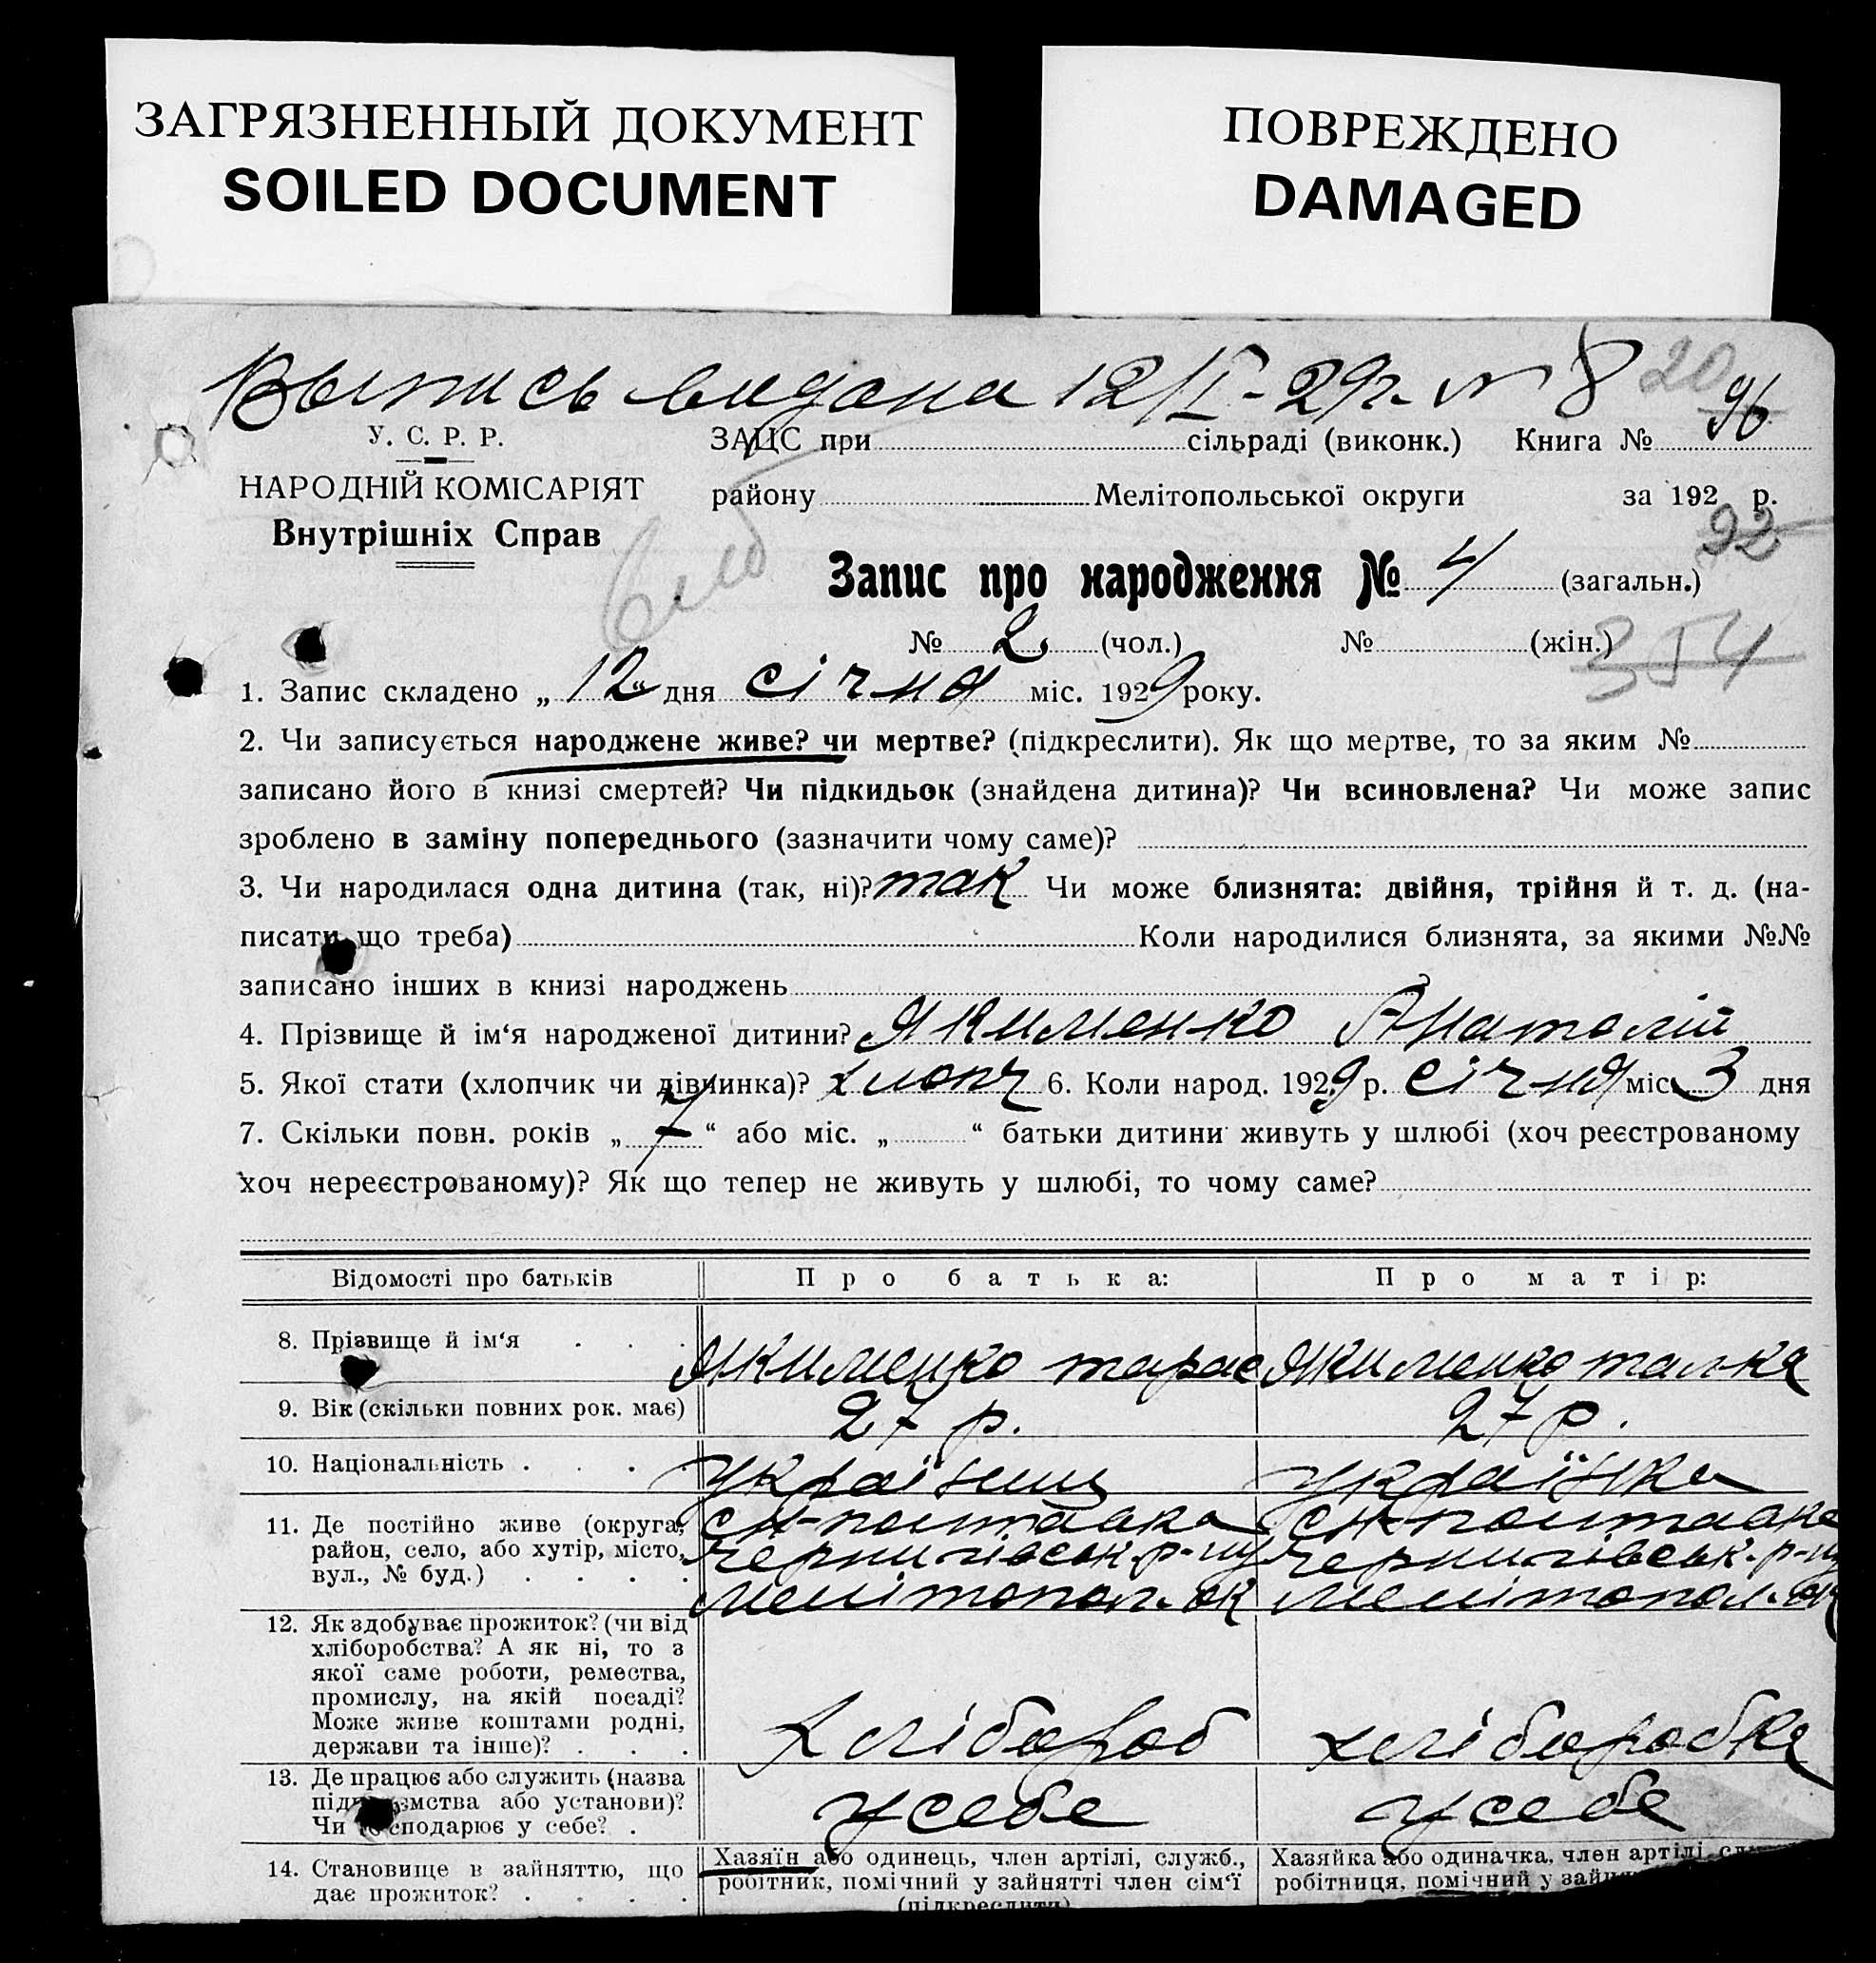 ЗАГРЯЗНЕННЫЙ ДОКУМЕНТ
SOILED DOCUMENT
ПОВРЕЖДЕНО
DAMAGED
Выпись видана 12/I-29г. № 8 20 96
У. С. Р. Р.
НАРОДНІЙ КОМІСАРІЯТ
Внутрішніх Справ
ЗАЦС при сільраді (виконк.) Книга №
району Мелітопольської округи за 192 р.
92
Запис про народження № 4 (загальн.)
№ 2 (чол.) № (жін.)
354
1. Запис складено „12“ дня січня міс. 1929 року.
2. Чи записується народжене живе? чи мертве? (підкреслити). Як що мертве, то за яким №
записано його в книзі смертей? Чи підкидьок (знайдена дитина)? Чи всиновлена? Чи може запис
зроблено в заміну попереднього (зазначити чому саме)?
3. Чи народилася одна дитина (так, ні)? так Чи може близнята: двійня, трійня й т. д. (на-
писати що треба) Коли народилися близнята, за якими №№
записано інших в книзі народжень
4. Прізвище й ім‘я народженої дитини? Якименко Анатолій
5. Якої стати (хлопчик чи дівчинка)? хлопч 6. Коли народ. 1929 р. січня міс. 3 дня
7. Скільки повн. років „7“ або міс. „ “ батьки дитини живуть у шлюбі (хоч реєстрованому
хоч нереєстрованому)? Як що тепер не живуть у шлюбі, то чому саме?
Відомості про батьків Про батька: Про матір:
8. Прізвище й ім‘я . . . Якименко тарас Якименко талка
9. Вік (скільки повних рок. має) 27 р. 27 р.
10. Національність . . . . Українець Українка
11. Де постійно живе (округа, район, село, або хутір, місто, вул., № буд.) . . . .
СН-полтавка СН-полтавка
чернигівськ. р-ну чернигівськ. р-ну
мелітопол. ок мелітопол. ок
12. Як здобуває прожиток? (чи від
хліборобства? А як ні, то з
якої саме роботи, ремества,
промислу, на якій посаді?
Може живе коштами родні,
держави та інше)? . . .
хлібороб хліборобка
13. Де працює або служить (назва
підприємства або установи)?
Чи господарює у себе? .
у себе у себе
14. Становище в зайняттю, що
дає прожиток? . . . .
Хазяїн або одинець, член артілі, служб.,
робітник, помічний у зайнятті член сім‘ї
(підкреслити)
Хазяйка або одиначка, член артілі,
робітниця, помічний у